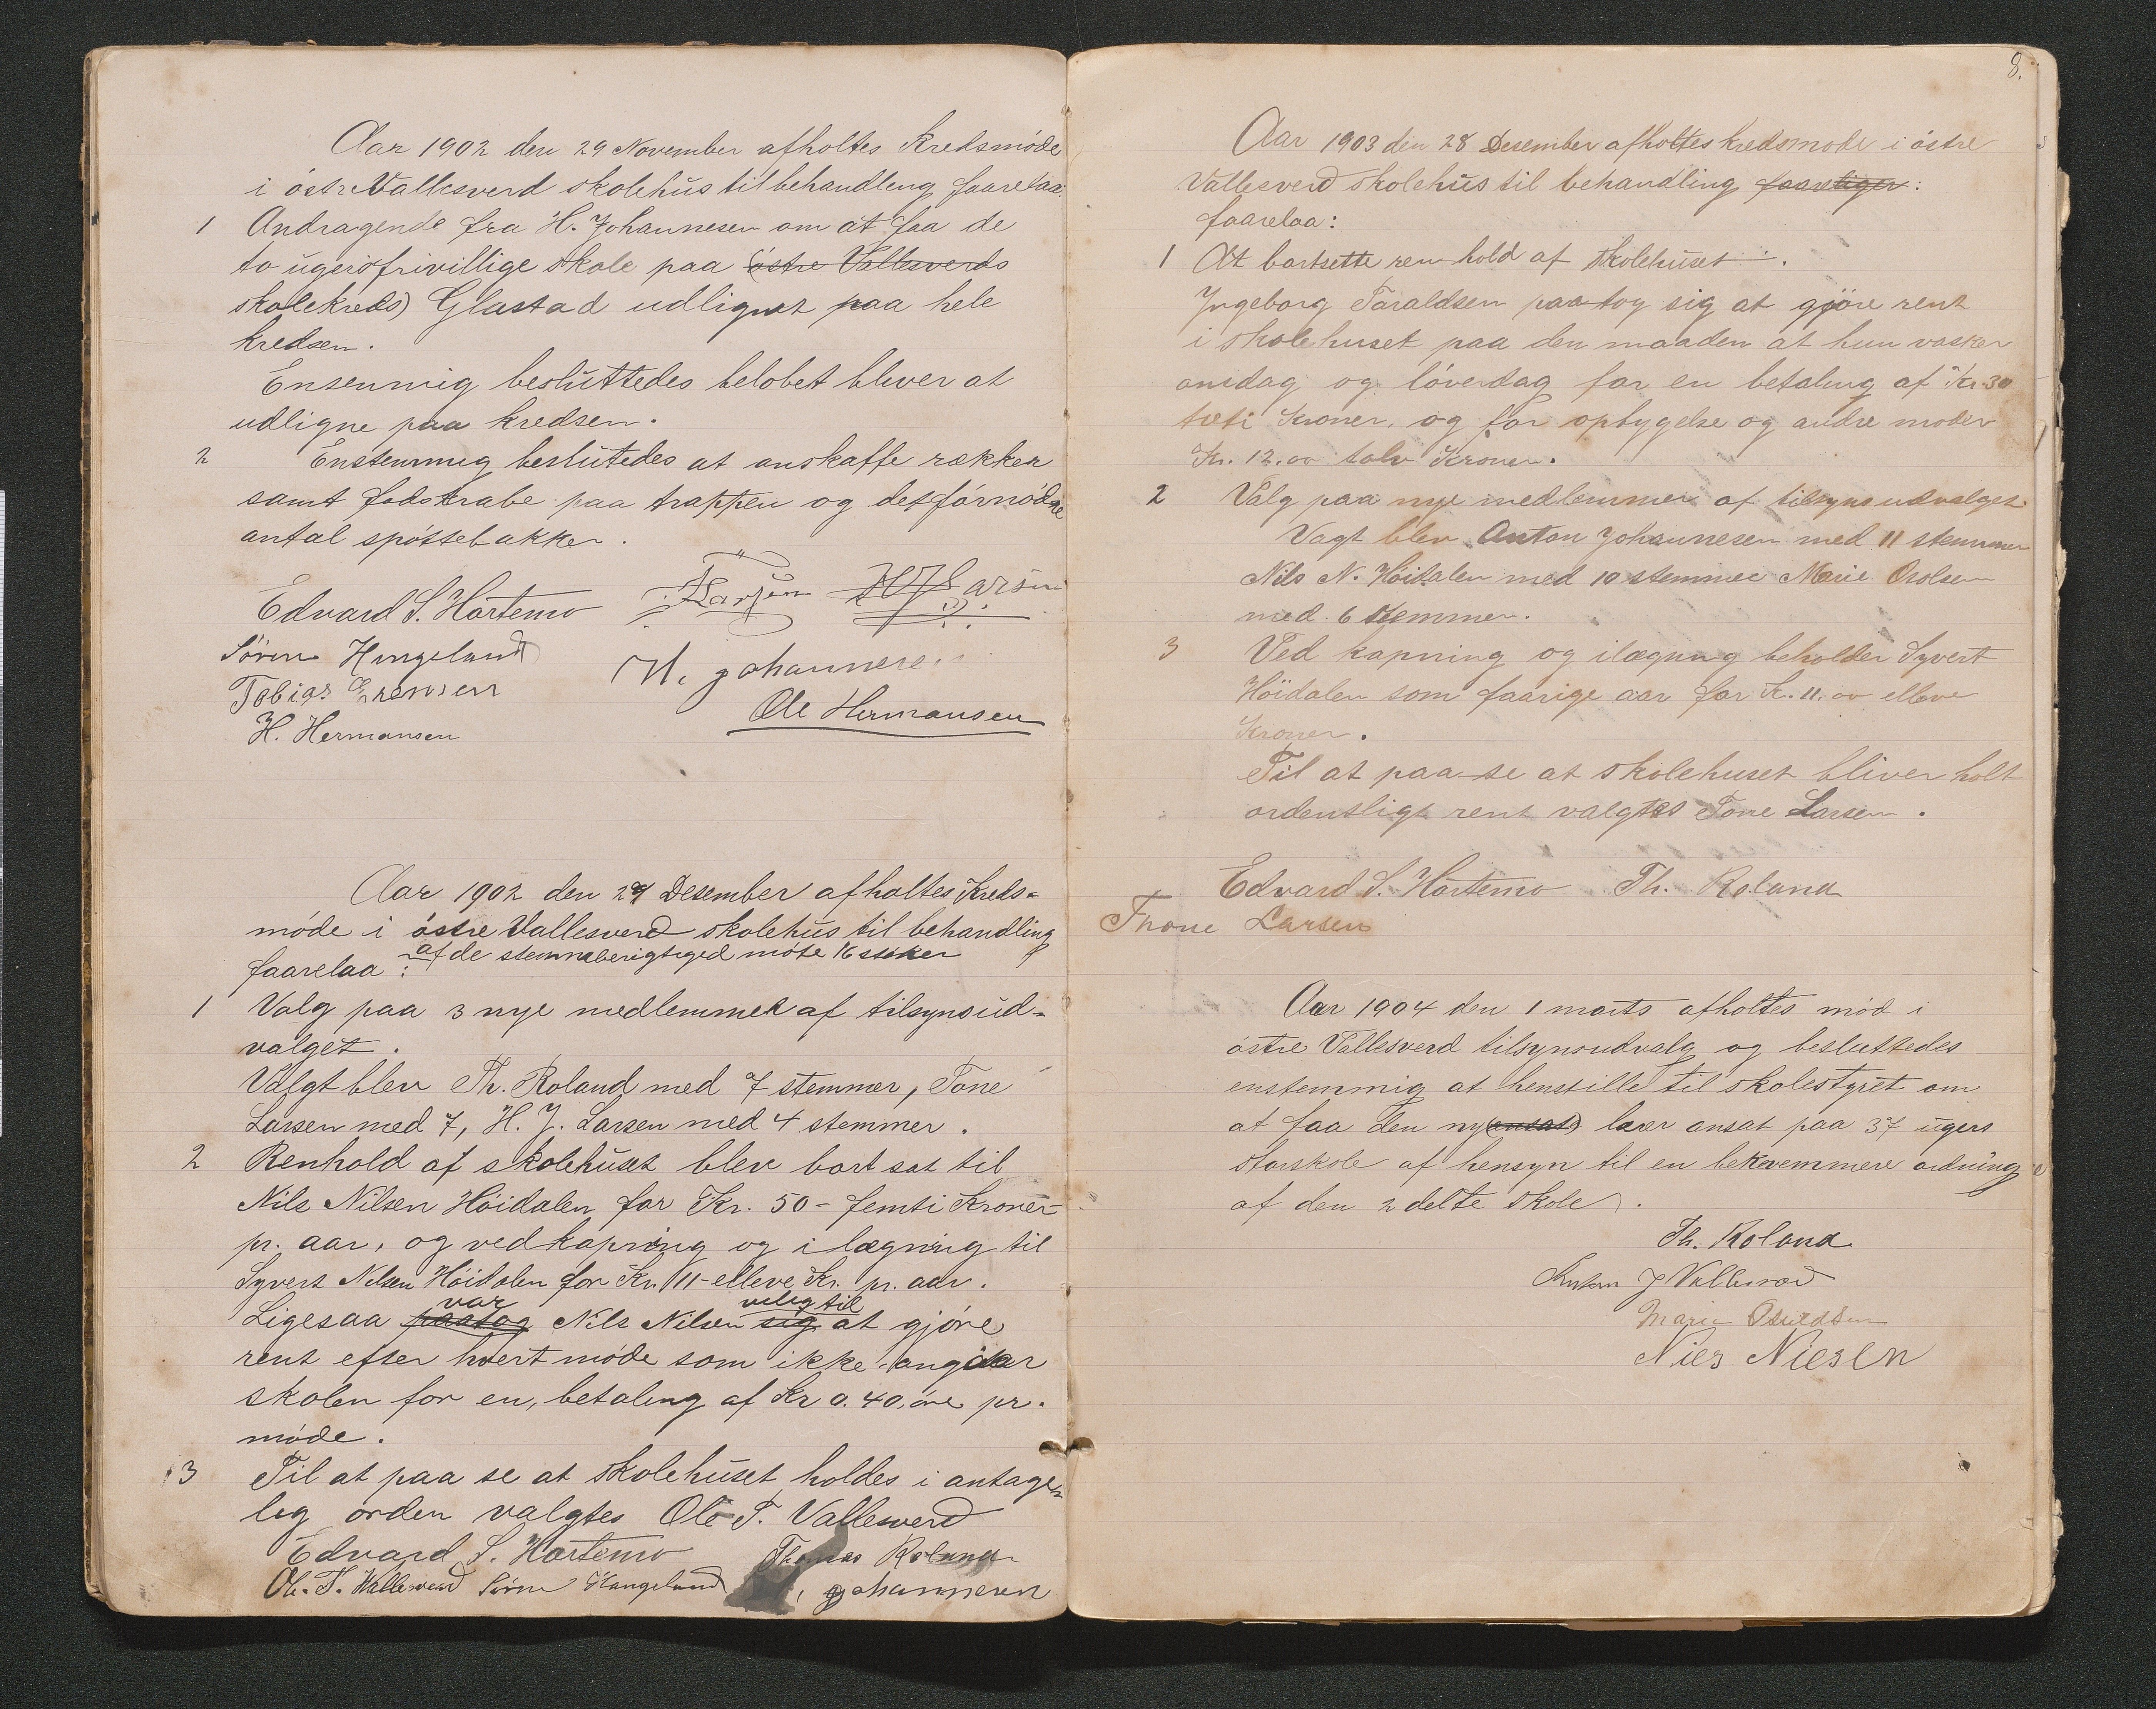 Aar 1902 den 29 November afholtes Kredsmöde
i östre Vallesverd skolehüs til behandleng faarelaa:
1 Andragende fra H. Johannesen om at faa de
to ügers frivillige skole paa (östre Vallesverds
skolekreds) Glastad udlignet paa hele
kredsen.
Ensenmig beslüttedes belobet blever at
udligne paa kredsen.
2 Enstemmig beslütedes at anskaffe rækker
samt fodskrabe paa trappen og det fórnódne
antal spöttebakker.
Edvard S. Hårtemo T Larsen H J Larsen
Sören Hængeland H. Johannesen
Tobias Erensen
Ole Hermansen
H. Hermansen
Aar 1902 den 29 Desember afholtes Kreds-
möde i östre Vallesverd skolehüs til behandling
faarelaa: af de stemmeberigtiged møte 16 styker
1 Valg paa 3 nye medlemmer af tilsynsüd-
valget.
Valgt blev Th. Roland med 7 stemmer, Tone
Larsen med 7, H. J. Larsen med 4 stemmer.
2 Renhold af skolehüset blev bort sat til
Nils Nilsen Höidalen for Kr. 50 - femti Kroner-
pr. aar, og vedkapning og i lægning til
Syvert Nilsen Höidalen for Kr. 11 - elleve Kr. pr. aar.
Ligesaa paatog var Nils Nilsen sig veleg til at gjöre
rent efter hvert möde som ikke angaar
skolen for en, betaling af Kr 0.40, öre pr.
möde.
3 Til at paa se at skolehüset holdes i antage-
leg orden valgtes Ole T. Vallesverd
Edvard S. Hårtemo Thomas Roland
Ole. T. Wallesverd Sören Hængeland Johannesen
8.
Aar 1903 den 28 Desember afholtes kredsmode i östre
Vallesverd skolehüs til behandling faaretiger:
faarelaa:
1 At bortsette renhold af skolehüset.
Ingeborg Taraldsen paatog sig at gjöre rent
i skolehuset paa den maaden at hun vasker
onsdag og löverdag for en betaling af Kr. 30
treti Kroner, og for opbygelse og andre moder
Kr. 12.00 tolv Kroner.
2 Valg paa nye medlemmer af tilsynsudvalget
Vagt blev Anton Johannesen med 11 stemmer
Nils N. Höidalen med 10 stemmer Marie Osolsen
med 6 stemmer.
3 Ved kapning og ilægning beholder Syvert
Höidalen som faarige aar for Kr. 11.00 elleve
Kroner.
Til at paa-se at skolehuset bliver holt
ordentligt rent valgtes Tone Larsen.
Edvard S. Hårtemo Th. Roland
Thone Larsen
Aar 1904 den 1 marts afholtes möd i
östre Vallesverd tilsynsudvalg og besluttedes
enstemmig at henstille til skolestyret om
at faa den ny (ansat) lærer ansat paa 37 ügers
storskole af hensyn til en bekvemmere ordning
af den 2 delte skole.
Th. Roland
Anton J Vallesverd
Marie Osuldsen
Nils Nielsen